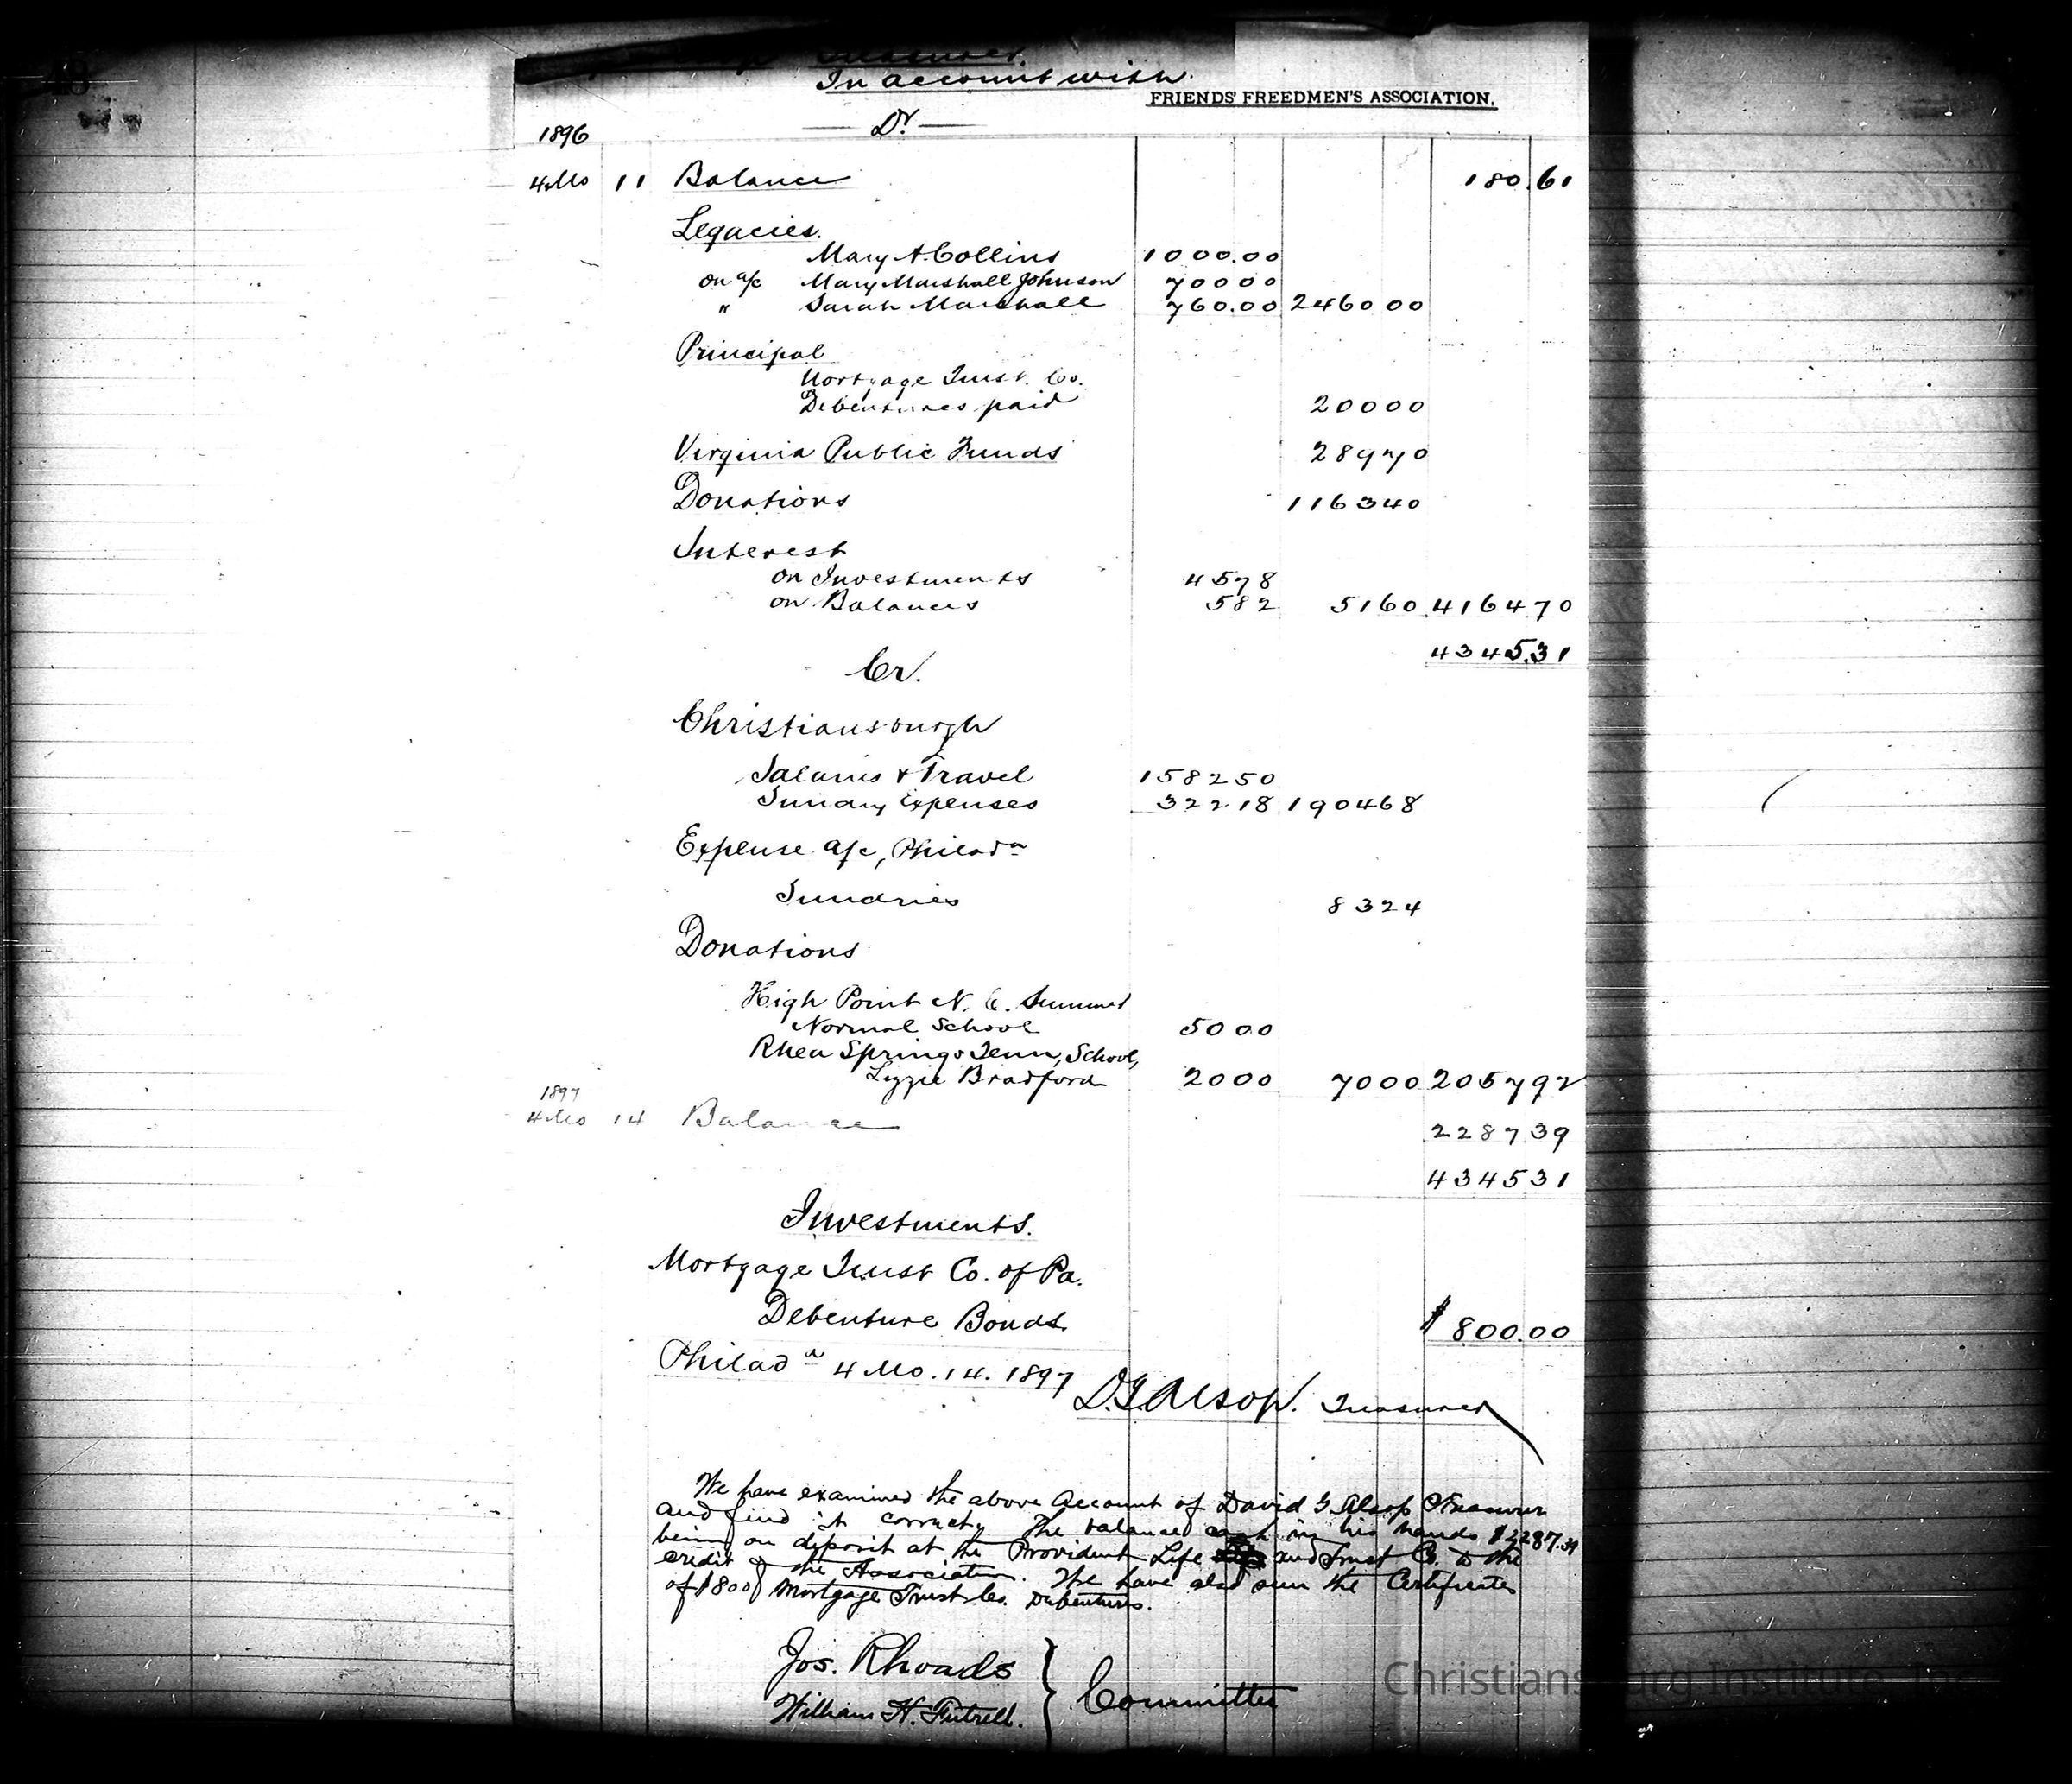 In account with
FRIENDS' FREEDMEN'S ASSOCIATION.
1896 Dr
4 Mo 11 Balance 180.61
Legacies.
Mary A Collins 1000.00
on a/c Mary Marshall Johnson 70000
" Sarah Marshall 760.00 2460 00
Principal
Mortgage Trust. Co.
Debentures paid 20000
Virginia Public Funds 28970
Donations 116340
Interest
on Investments 4578
on Balances 582 5160 416470
4345.31
Cr.
Christiansburgh
Salaries & Travel 158250
Sundry Expenses 322.18 190468
Expense a/c, Philada
Sundries 8324
Donations
High Point N. C. Summer
Normal School 5000
Rhea Springs Tenn, School,
Lizzie Bradford 2000 7000 205792
1897
4 Mo 14 Balance 228739
434531
Investments.
Mortgage Trust Co. of Pa.
Debenture Bonds. $800.00
Philada 4 Mo. 14. 1897
D.G Alsop. Treasurer
We have examined the above Account of David G Alsop Treasurer
and find it correct, The balance cash in his hands $2287.39
being on deposit at the Provident Life and Trust Co. to the
credit of the Association. We have also seen the Certificates
of $800 Mortgage Trust Co. Debentures.
Jos. Rhoads
William H. Futrell. } Committee
Christiansburg Institute, Inc